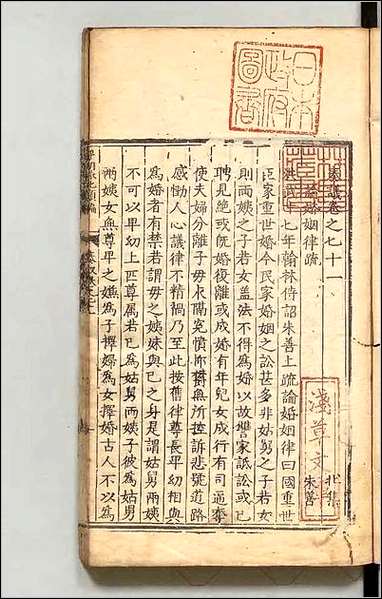 日本
政府
圖書
奏議卷之七十一
婚姻律疏 朱善
七年翰林待詔朱善上疏論婚姻律曰國重世
臣家重世婚今民家婚姻之訟甚多非姑舅之子若女
則兩姨之子若女盖法不得為婚以故讐家詆訟或已
聘見絶或旣婚復離或成婚有年兒女成行有司逼奪
使夫婦分離子母永隔寃憤抑鬱無所控訴悲號道路
感慟人心議律不精禍乃至此按舊律尊長卑幼相與
為婚者有禁若謂母之姨妹與己之身是謂姑舅兩姨
不可以卑幼上匹尊属若己為姑舅兩姨子彼為姑舅
兩姨女無尊卑之嫌為子擇婦為女擇婚古人不以為
淺草文